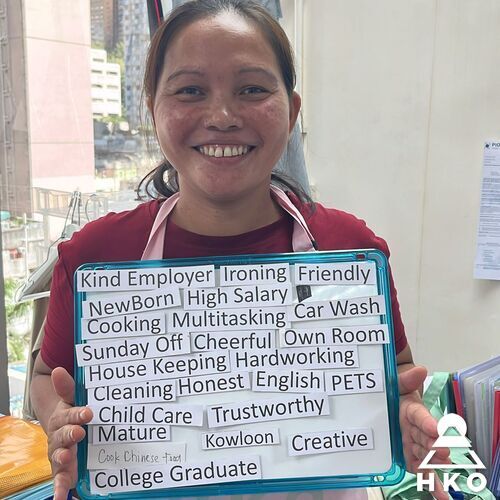 Kind Employer Ironing Friendly
NewBorn High Salary
Cooking Multitasking Car Wash
Sunday Off Cheerful Own Room
House Keeping Hardworking
Cleaning Honest English PETS
Child Care Trustworthy
Mature Kowloon Creative
Cook Chinese Food
College Graduate
HKO